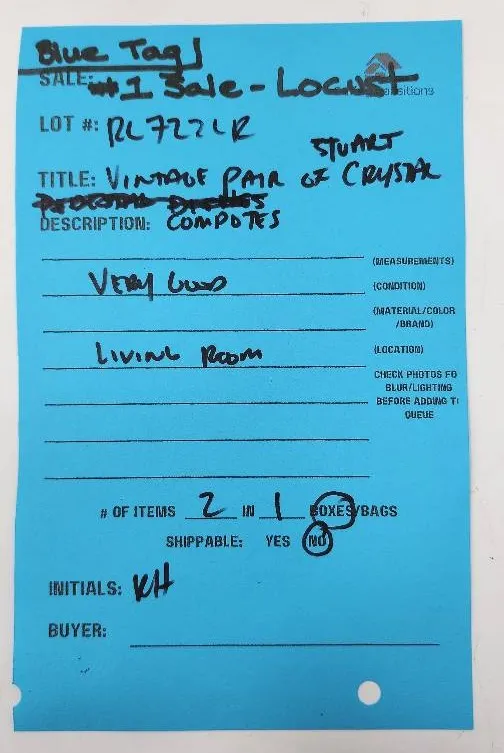 Blue Tag
SALE: #1 Sale - Locust
LOT #: RL722LR
STUART
TITLE: VINTAGE PAIR OF CRYSTAL
PEDESTAL DISHES
DESCRIPTION: COMPOTES
(MEASUREMENTS)
VERY GOOD (CONDITION)
(MATERIAL/COLOR
/BRAND)
LIVING ROOM (LOCATION)
CHECK PHOTOS FO
BLUR/LIGHTING
BEFORE ADDING T
QUEUE
# OF ITEMS 2 IN 1 BOXES/BAGS
SHIPPABLE: YES NO
INITIALS: KH
BUYER: